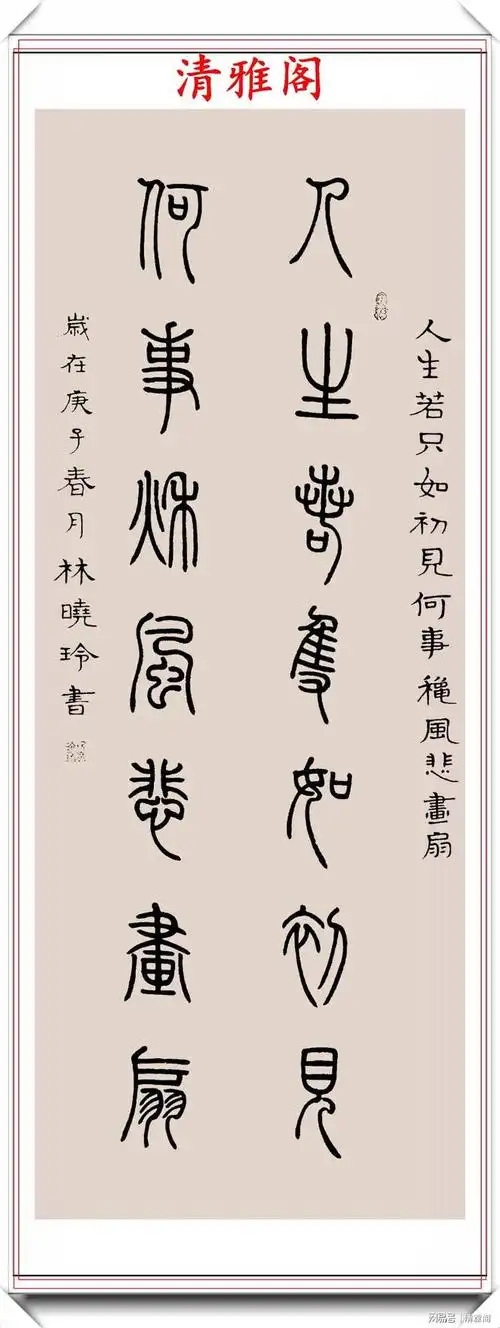 清雅阁
人生若只如初見何事穐風悲畫扇
人生若隻如初見
何事秋風悲畫扇
歲在庚子春月林曉玲書
网易号 | 清雅阁